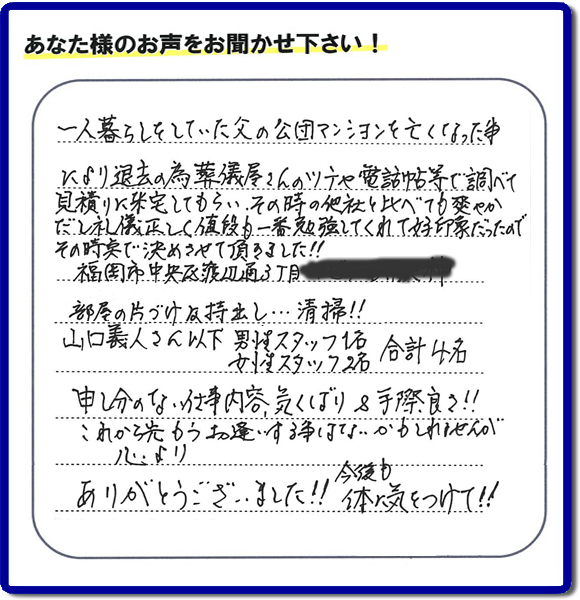 あなた様のお声をお聞かせ下さい！
一人暮らしをしていた父の公団マンションを亡くなった事
により退去の為葬儀屋さんのツテや電話帖等で調べて
見積りに来宅してもらい、その時の他社と比べても爽やか
だし礼儀正しく値段も一番勉強してくれて好印象だったので
その時点で決めさせて頂きました!!
福岡市中央区渡辺通3丁目
部屋の片づけ&持出し…清掃!!
山口義人さん以下 男性スタッフ1名
女性スタッフ2名 合計4名
申し分のない仕事内容、気くばり&手際良さ!!
これから先もうお逢いする事はないかもしれませんが
心より
ありがとうございました!! 今後も
体に気をつけて!!